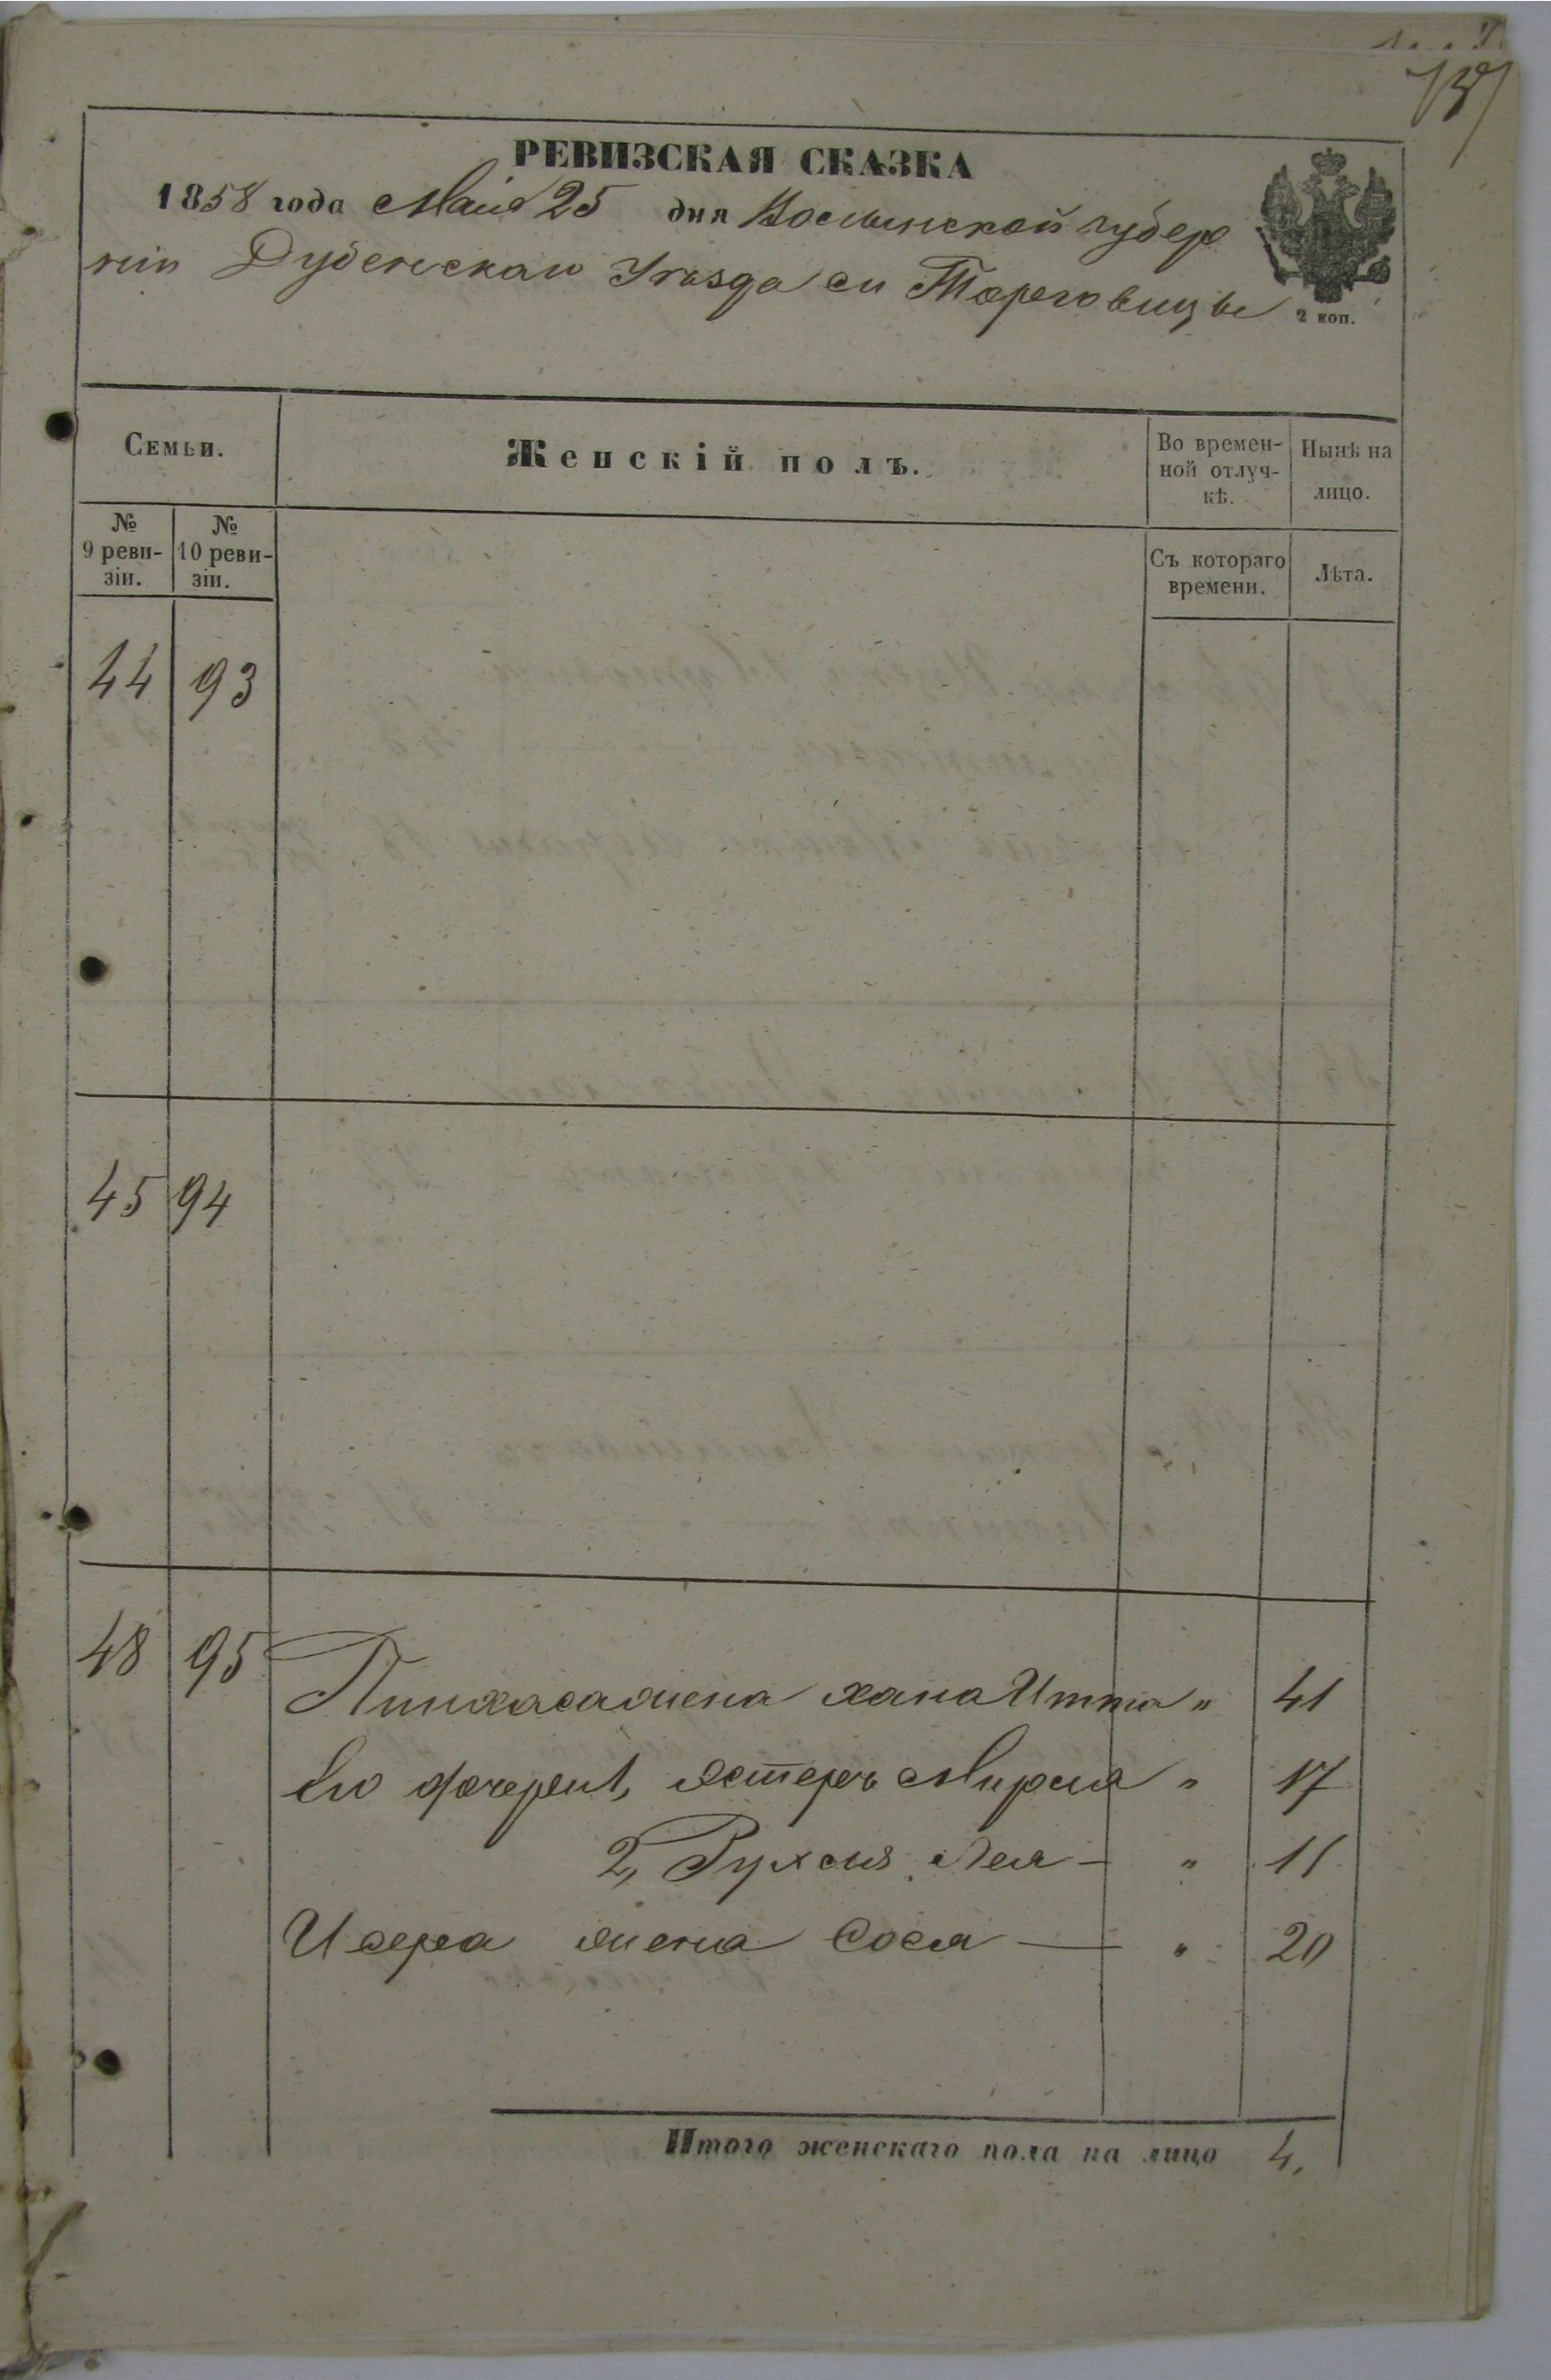 РЕВИЗСКАЯ СКАЗКА
1858 года Маія 25 дня Волынской губер
ніи Дубенскаго Уѣзда м Тарговицы
2 коп.
Семьи.
Женскій полъ.
Во времен-
ной отлуч-
кѣ.
Нынѣ на
лицо.
№
9 реви-
зіи.
№
10 реви-
зіи.
Съ котораго
времени.
Лѣта.
44 93
45 94
48 95
Пинхаса жена Хана Итта " 41
Его дочери 1, Эстеръ Мирля " 17
2, Рухля Лея — " 11
Исера жена Сося — " 20
Итого женскаго пола на лицо 4,